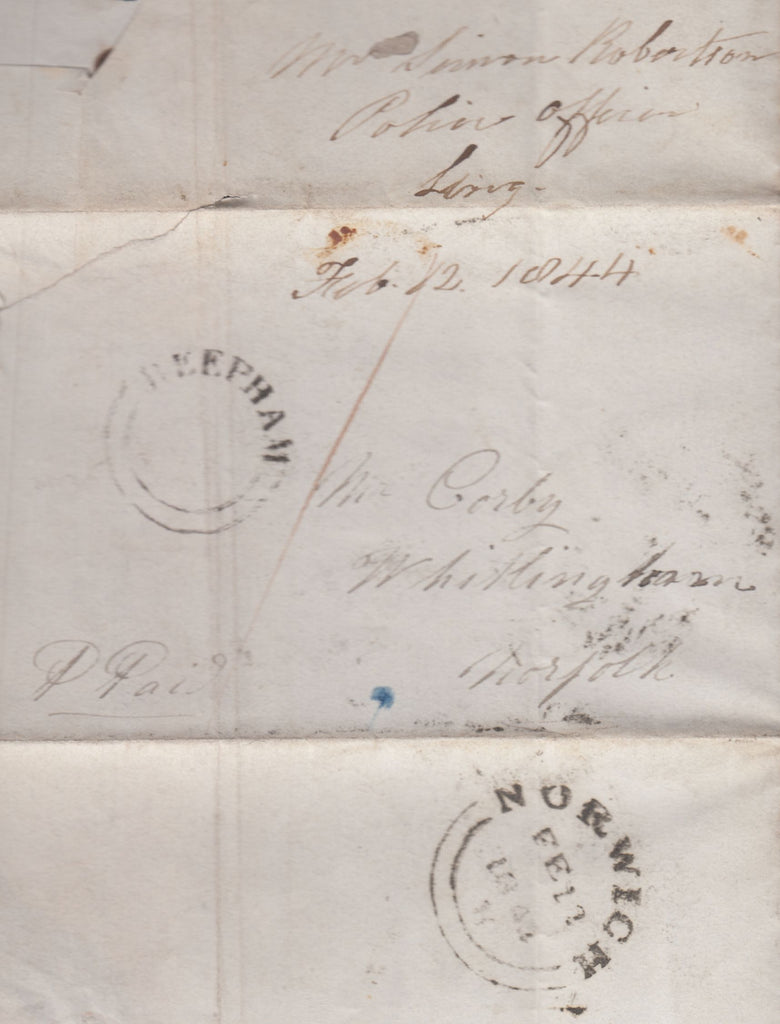 Mr Simon Robertson
Police officer
Ling.
Feb. 12. 1844
REEPHAM
Mr Corby
Whitlingham
Norfolk
P Paid
NORWICH
FE 12